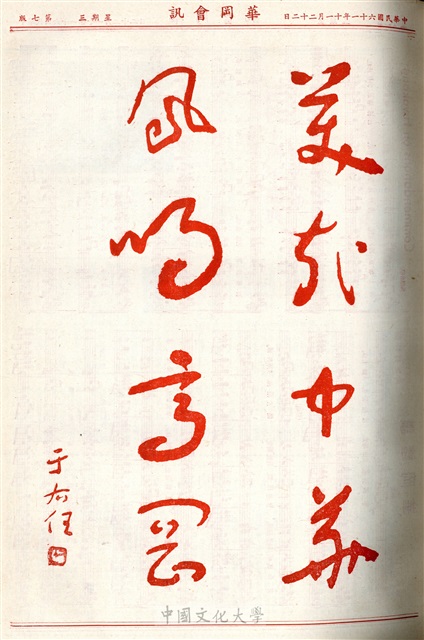 中華民國六十一年十一月二十二日
華岡會訊
星期三
第七版
美哉中華
鳳鳴高岡
于右任
中國文化大學